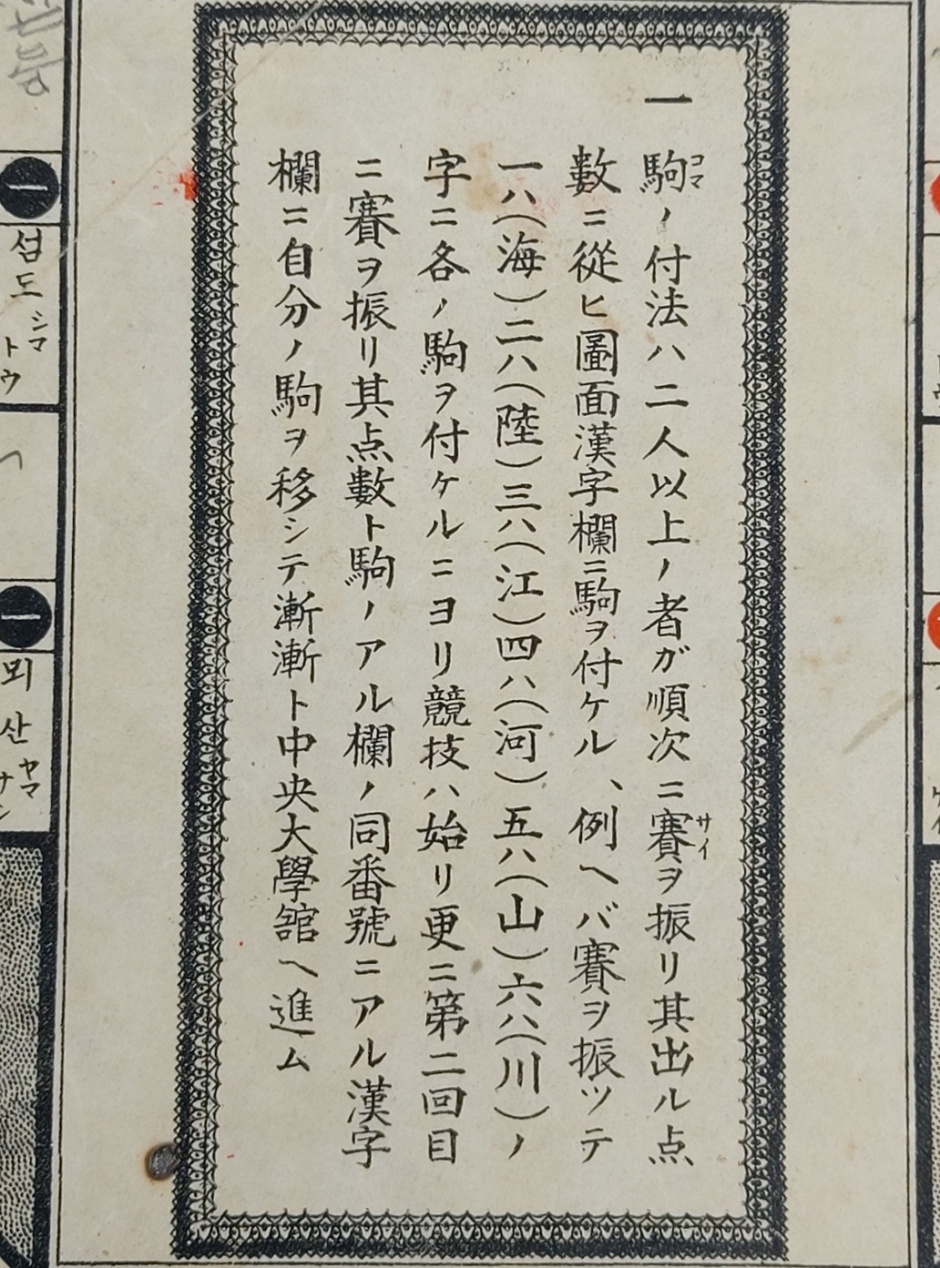 一 駒ノ付法ハ二人以上ノ者ガ順次ニ賽ヲ振リ其出ル点
コマ
サイ
數ニ從ヒ圖面漢字欄ニ駒ヲ付ケル、例ヘバ賽ヲ振ツテ
一ハ(海)二ハ(陸)三ハ(江)四ハ(河)五ハ(山)六ハ(川)ノ
字ニ各ノ駒ヲ付ケルニヨリ競技ハ始リ更ニ第二回目
ニ賽ヲ振リ其点數ト駒ノアル欄ノ同番號ニアル漢字
欄ニ自分ノ駒ヲ移シテ漸漸ト中央大學舘ヘ進ム
一
섬 도
シマ
トウ
一
뫼 산
ヤマ
サン